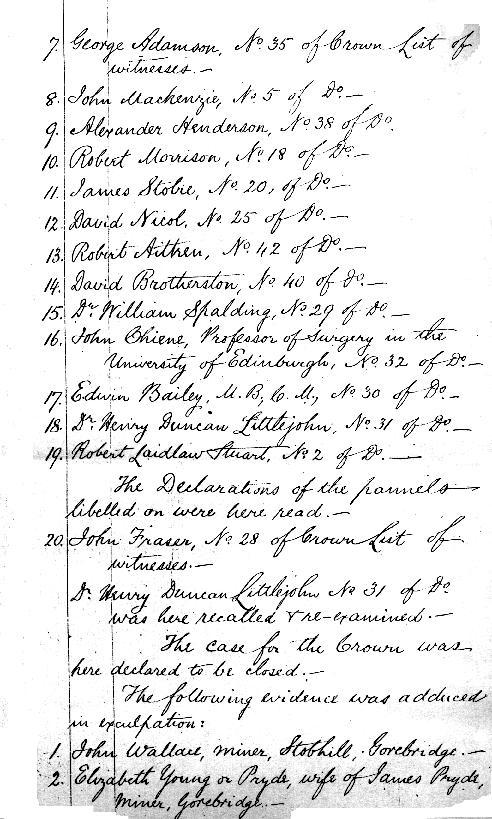 7. George Adamson, No. 35 of Crown List of
witnesses.—
8. John Mackenzie, No 5 of Do.—
9. Alexander Henderson, No 38 of Do.
10. Robert Morrison, No. 18 of Do.—
11. James Stobie, No. 20, of Do.—
12. David Nicol, No. 25 of Do.—
13. Robert Aitken, No. 42 of Do.—
14. David Brotherston, No. 40 of do.—
15. Dr. William Spalding, No. 29 of Do.—
16. John Chiene, Professor of Surgery in the
University of Edinburgh, No. 32 of Do.—
17. Edwin Bailey, M.B., C.M., No 30 of Do—
18. Dr. Henry Duncan Littlejohn, No. 31 of Do.—
19. Robert Laidlaw Stuart, No 2 of Do.—
The Declarations of the pannels
libelled on were here read.—
20. John Fraser, No 28 of Crown List of
witnesses.—
Dr. Henry Duncan Littlejohn No 31 of Do
was here recalled & re-examined.—
The case for the Crown was
here declared to be closed.—
The following evidence was adduced
in exculpation:
1. John Wallace, miner, Stobhill, Gorebridge.—
2. Elizabeth Young or Pryde, wife of James Pryde,
Miner, Gorebridge.—